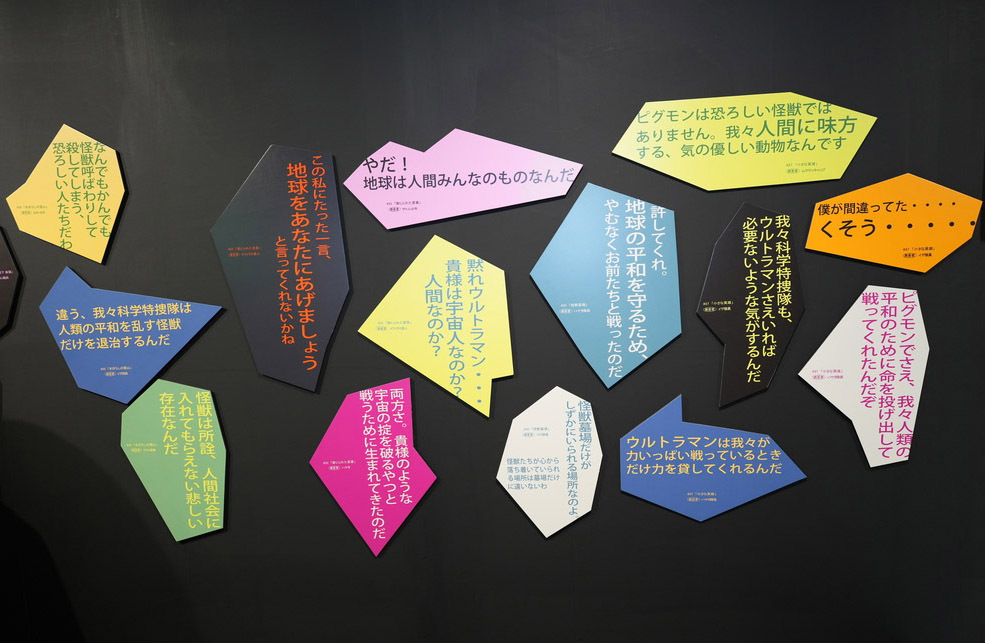 なんでもかんでも
怪獣呼ばわりして
殺してしまう、
恐ろしい人たちだわ
違う、我々科学特捜隊は
人類の平和を乱す怪獣
だけを退治するんだ
怪獣は所詮、人間社会に
入れてもらえない悲しい
存在なんだ
この私にたった一言、
地球をあなたにあげましょう
と言ってくれないかね
やだ！
地球は人間みんなのものなんだ
黙れウルトラマン・・・
貴様は宇宙人なのか？
人間なのか？
両方さ。貴様のような
宇宙の掟を破るやつと
戦うために生まれてきたのだ
許してくれ。
地球の平和を守るため、
やむなくお前たちと戦ったのだ
怪獣墓場だけが
しずかにいられる場所なのよ
怪獣たちが心から
落ち着いていられ
る場所は墓場だけ
に違いないわ
ピグモンは恐ろしい怪獣では
ありません。我々人間に味方
する、気の優しい動物なんです
我々科学特捜隊も、
ウルトラマンさえいれば
必要ないような気がするんだ
ウルトラマンは我々が
力いっぱい戦っているとき
だけ力を貸してくれるんだ
僕が間違ってた・・・・
くそう・・・・・
ピグモンでさえ、我々人類の
平和のために命を投げ出して
戦ってくれたんだぞ